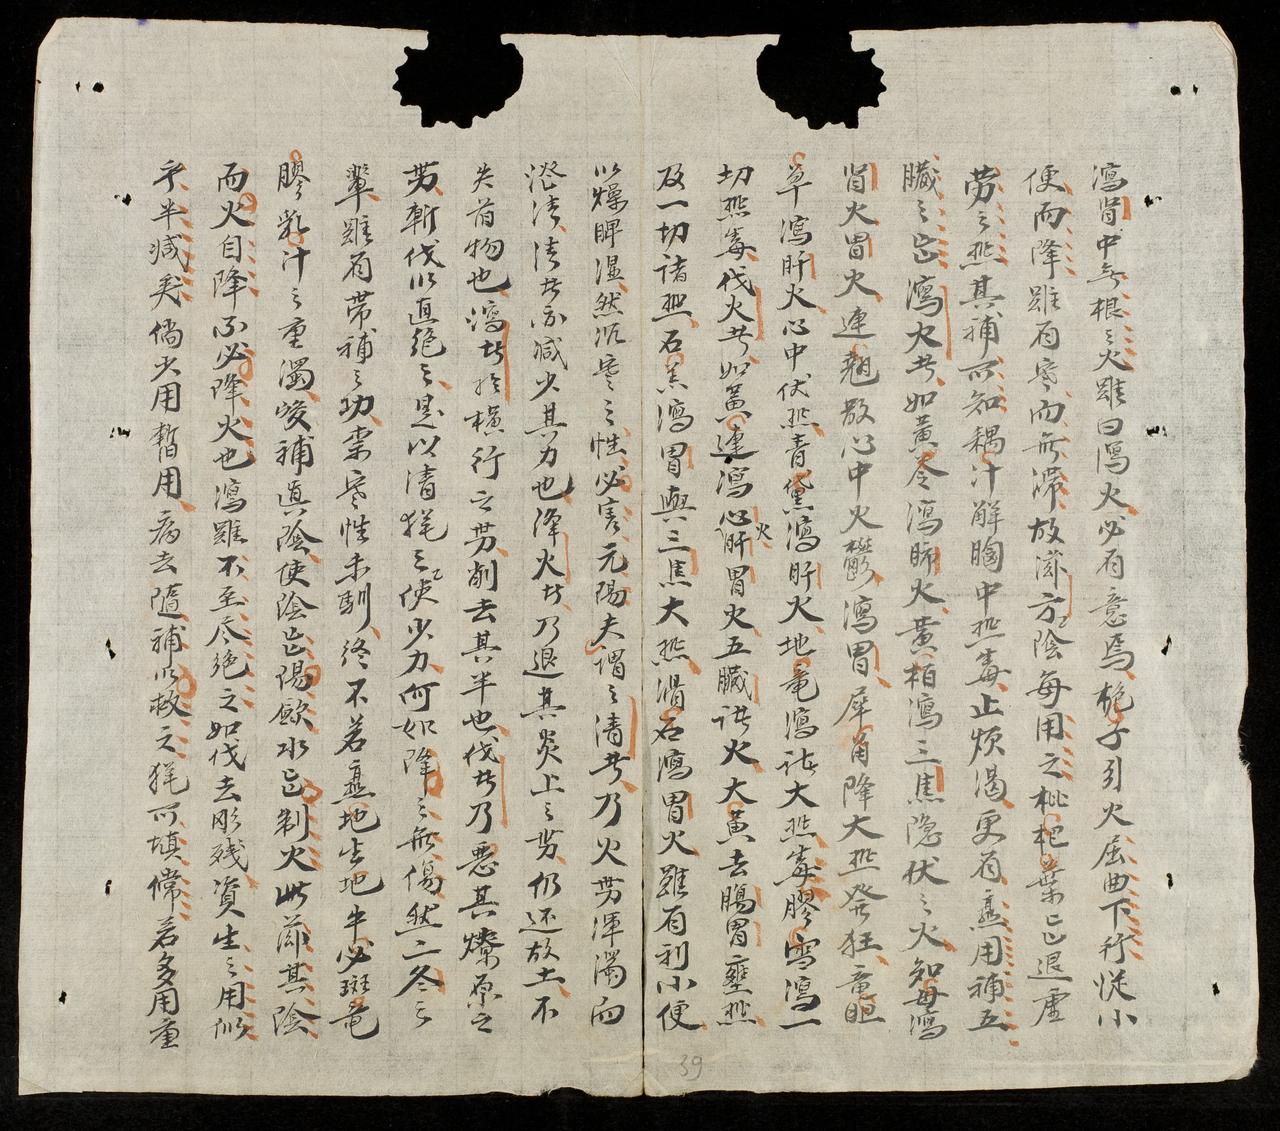 瀉腎中無根之火雖曰瀉火必有意焉梔子引火屈曲下行從小
便而降雖有寒而無滯故滋方陰每用之枇杷葉正退虛
劳之热其補可知藕汁解胸中热毒止烦渴更有意用補五
臟之正瀉火者如黃芩瀉肺火黃栢瀉三焦隐伏之火知母瀉
腎火胃火連翹散心中火欝瀉胃犀角降大热發狂竜胆
草瀉肝火心中伏热青黛瀉肝火地竜瀉諸大热毒膠雪瀉一
切热毒伐火者如黃連瀉心肝胃火五臟諸火大黃去腸胃壅热
及一切諸热石羔瀉胃與三焦大热滑石瀉胃火雖有利小便
以燥脾濕然沉寒之性必害元陽夫謂之清者乃火势渾濁而
澄清清者亦减少其力也降火者乃退其炎上之势仍还故土不
失有物也瀉者於橫行之势削去其半也伐者乃惡其燎原之
势斬伐以直絕之是以清㹭之使少力何如降之無傷然二冬之
輩雖有带補之功柰寒性未馴終不若熟地生地牛必斑竜
膠乳汁之重濁峻補真陰使陰正陽歛水正制火此滋其陰
而火自降不必降火也瀉雖不至尽絕之如伐去彫殘資生之用似
乎半减矣倘火用暫用病去随補以救之㹭可填償若多用重
火
39